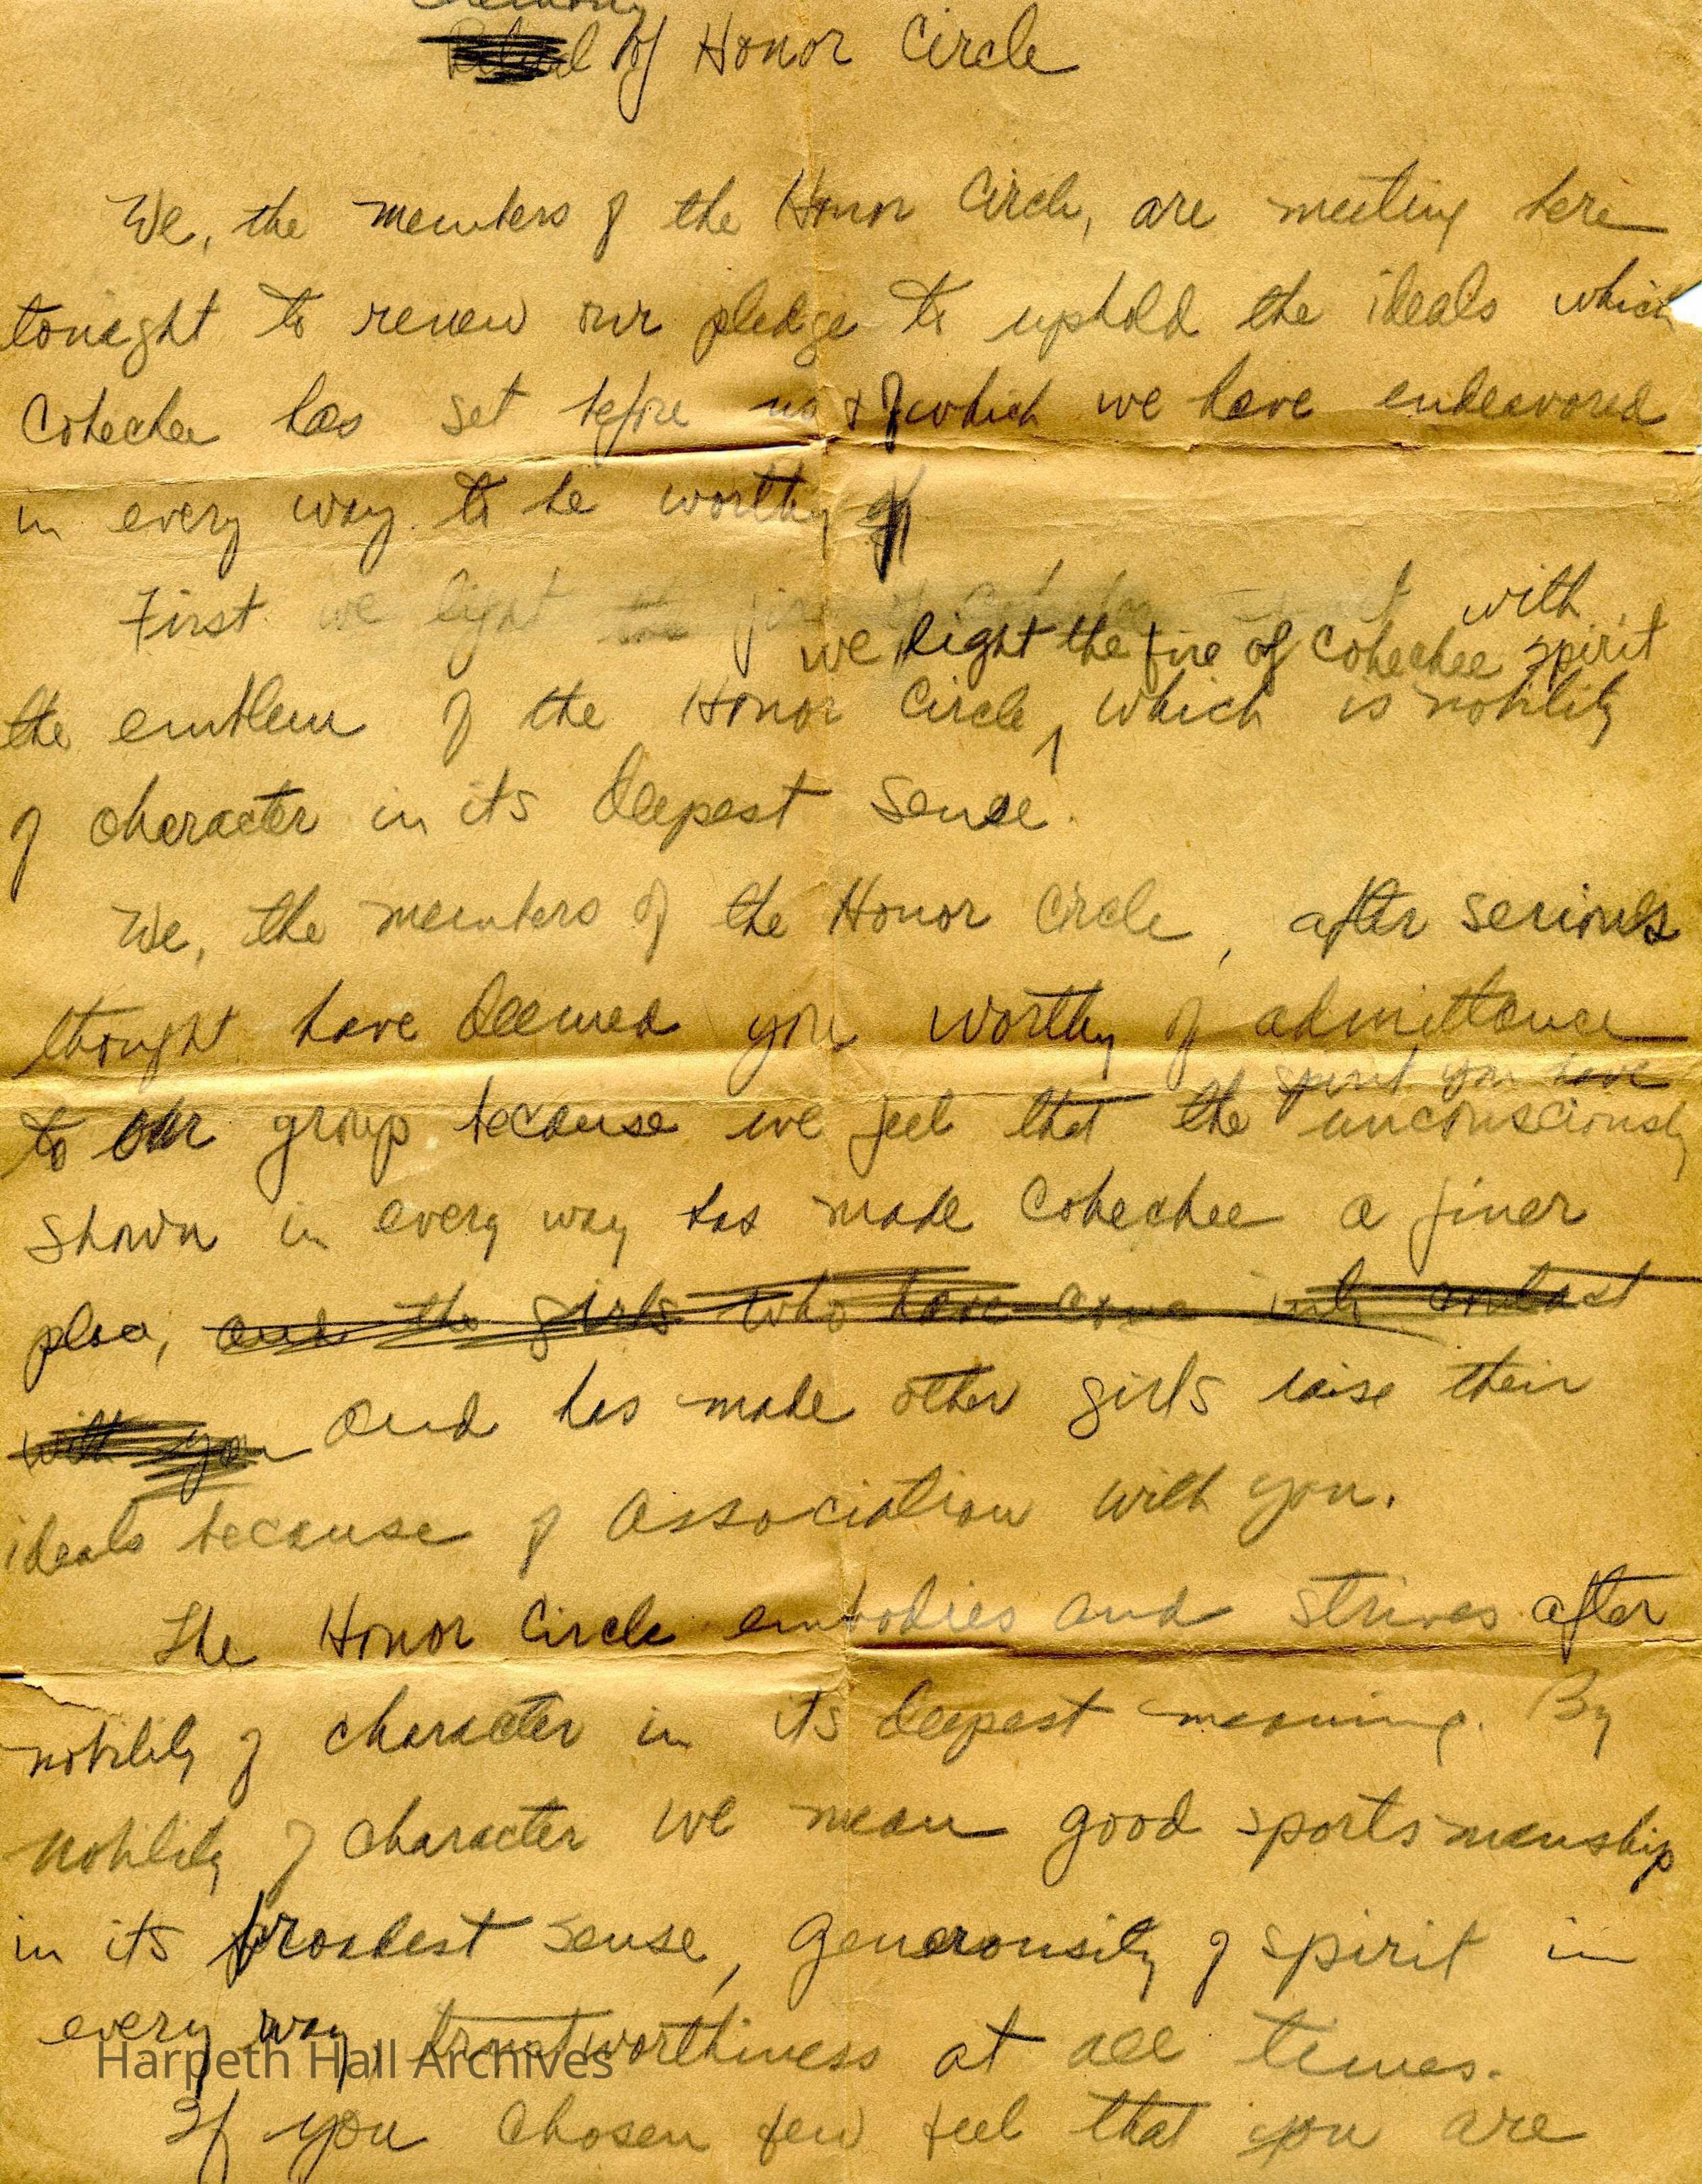 Ceremony
of Honor Circle
We, the members of the Honor Circle, are meeting here
tonight to renew our pledge to uphold the ideals which
Cohechee has set before us & of which we have endeavored
in every way to be worthy
with
First we light the
we light the fire of Cohechee spirit
the emblem of the Honor Circle, which is nobility
of character in its deepest sense.
We, the members of the Honor Circle, after serious
thought have deemed you worthy of admittance
spirit you have
to our group because we feel that the unconsciously
shown in every way has made Cohechee a finer
place, and the girls who have come into contact
with you and has made other girls raise their
ideals because of association with you.
The Honor Circle embodies and strives after
nobility of character in its deepest meaning. By
nobility of character we mean good sportsmanship
in its broadest sense, generousity of spirit in
every way, trustworthiness at all times.
Harpeth Hall Archives
If you chosen few feel that you are